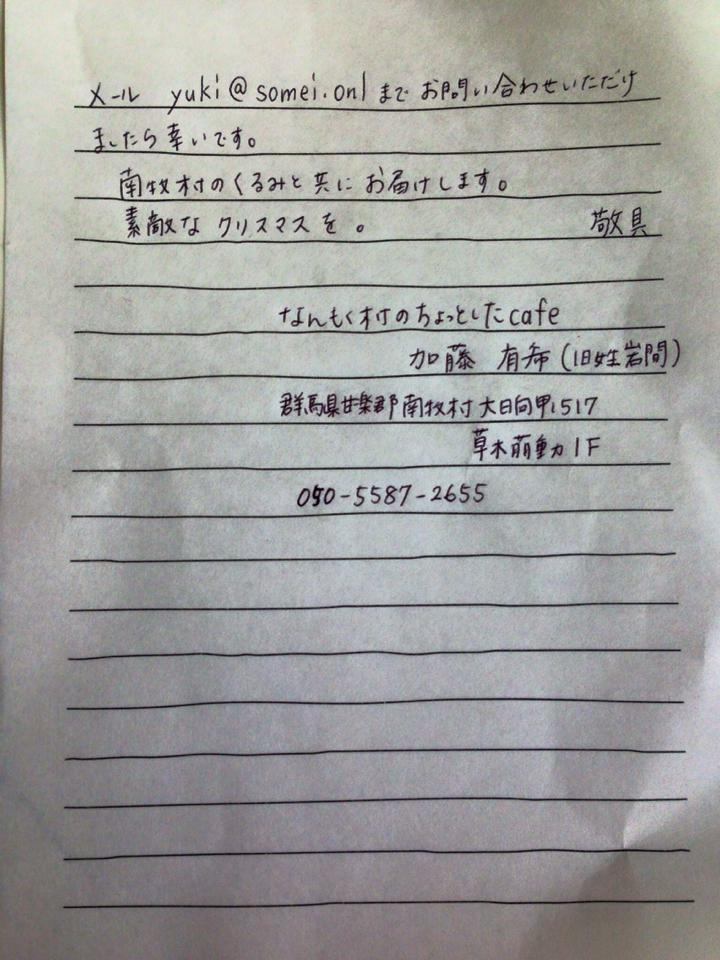 メール yuki@somei.onl まで お問い合わせいただけ
ましたら幸いです。
南牧村のくるみと共にお届けします。
素敵なクリスマスを。 敬具
なんもく村のちょっとしたcafe
加藤 有希(旧姓岩間)
群馬県甘楽郡南牧村大日向甲1517
草木萌動1F
050-5587-2655